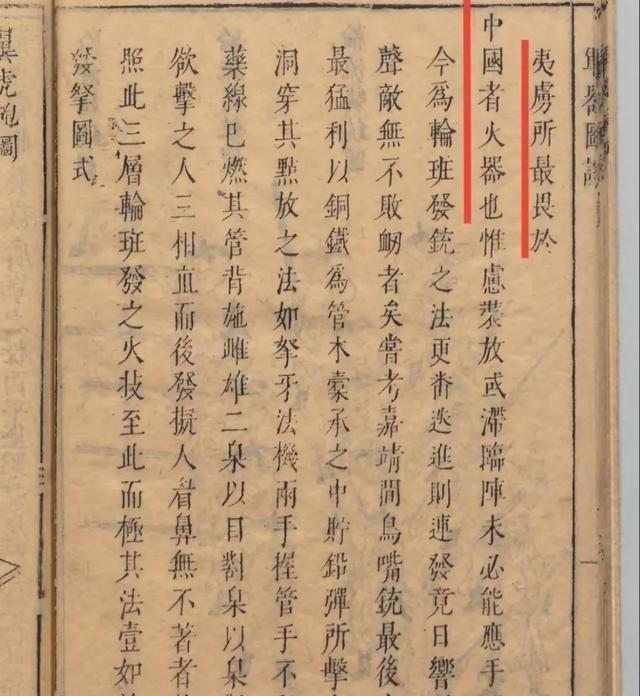 軍器圖說
夷虜所最畏於
中國者火器也惟慮裝放或滯臨陣未必能應手
今為輪班發銃之法更番迭進則連發竟日響
聲敵無不敗衂者矣嘗考嘉靖間鳥嘴銃最後
最猛利以銅鐵為管木橐承之中貯鉛彈所擊
洞穿其點放之法如弩牙法機兩手握管手不
藥線已燃其管背施雌雄二臬以目對臬以臬
欲擊之人三相直而後發擬人眉鼻無不著者
照此三層輪班發之火技至此而極其法壹如
發拏圖式
翼虎砲圖